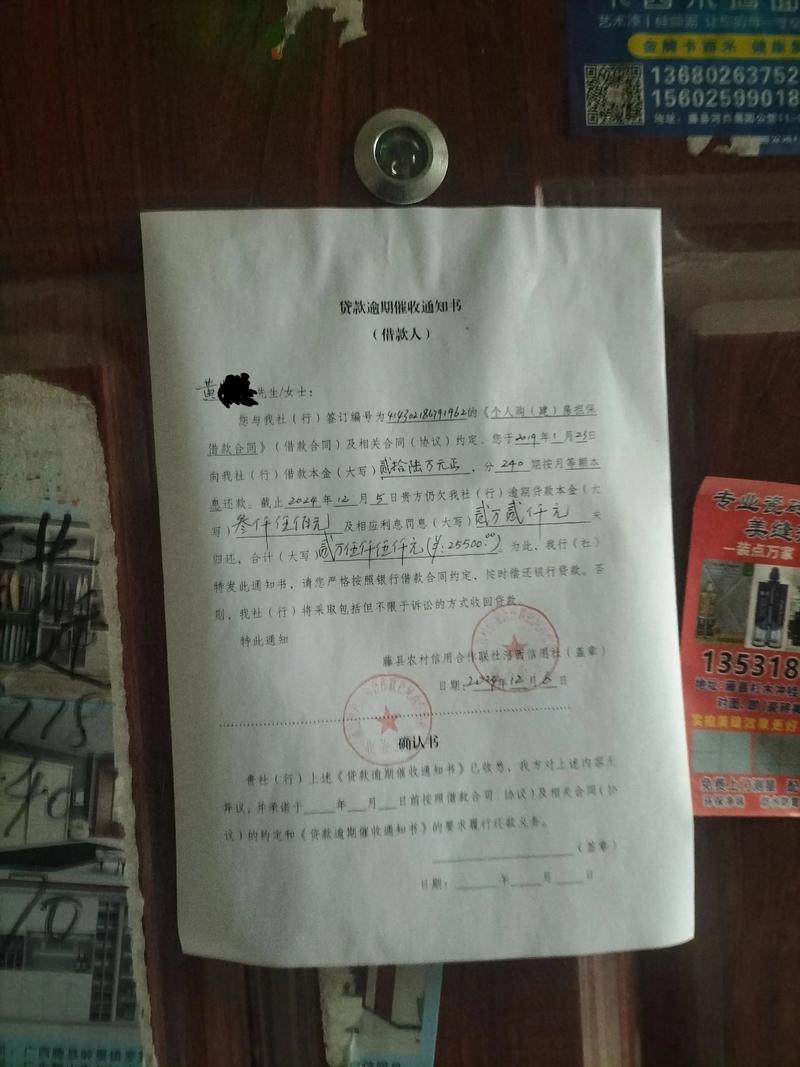 艺术漆
金牌卡百米 健康
13680263752
15602599018
贷款逾期催收通知书
（借款人）
黄 先生/女士：
您与我社（行）签订编号为414302186791962的《个人购（建）房担保
借款合同》（借款合同）及相关合同（协议）约定，您于2019年1月23日
向我社（行）借款本金（大写）贰拾陆万元正，分240期按月等额本
息还款。截止2024年12月5日贵方仍欠我社（行）逾期贷款本金（大
写）叁仟伍佰元 及相应利息罚息（大写）贰万贰仟元 未
归还，合计（大写）贰万伍仟伍仟元（¥：25500.00）。为此，我行（社）
特发此通知书，请您严格按照银行借款合同约定，按时偿还银行贷款。否
则，我社（行）将采取包括但不限于诉讼的方式收回贷款。
特此通知
藤县农村信用合作联社河西信用社（盖章）
日期：2024年12月5日
确认书
贵社（行）上述《贷款逾期催收通知书》已收悉，我方对上述内容无
异议，并承诺于____年___月___日前按照借款合同（协议）及相关合同（协
议）的约定和《贷款逾期催收通知书》的要求履行还款义务。
（签章）
日期：______年____月____日
专业瓷砖
美缝
一装点万家
135318
地址：藤县杉木冲
实验美缝效果更好
免费上门测量
环保净味 防水防霉